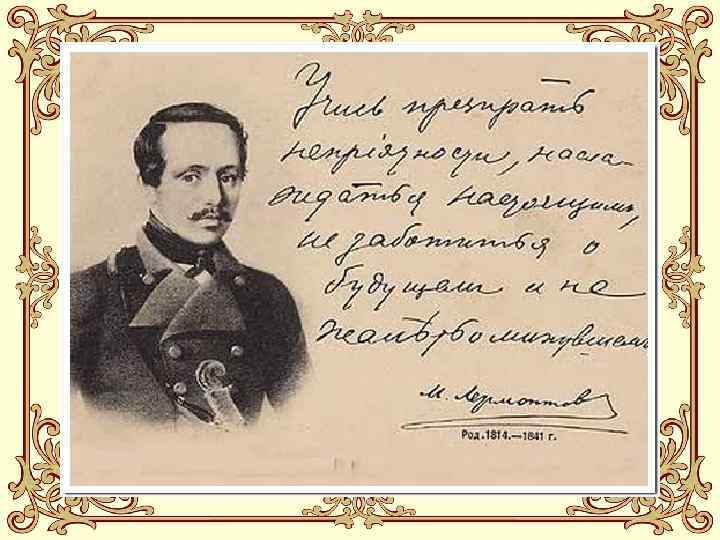 Учись презирать
непріязности, насла-
ждаться настоящимъ,
не заботиться о
будущемъ и не
жалѣть о минувшемъ
М. Лермонтов
Род. 1814.—1841 г.